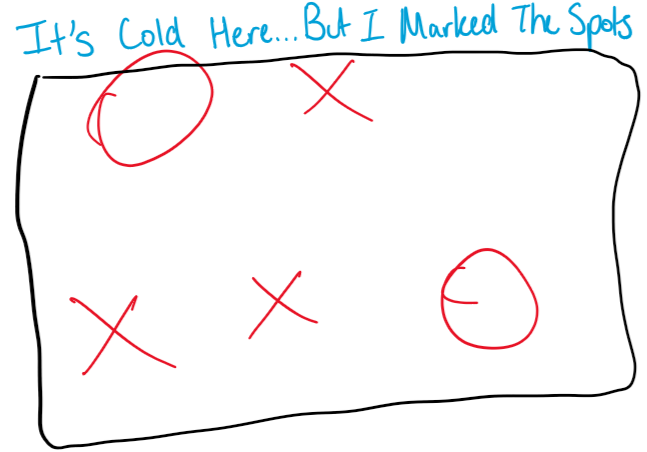 It's Cold Here...But I Marked The Spots